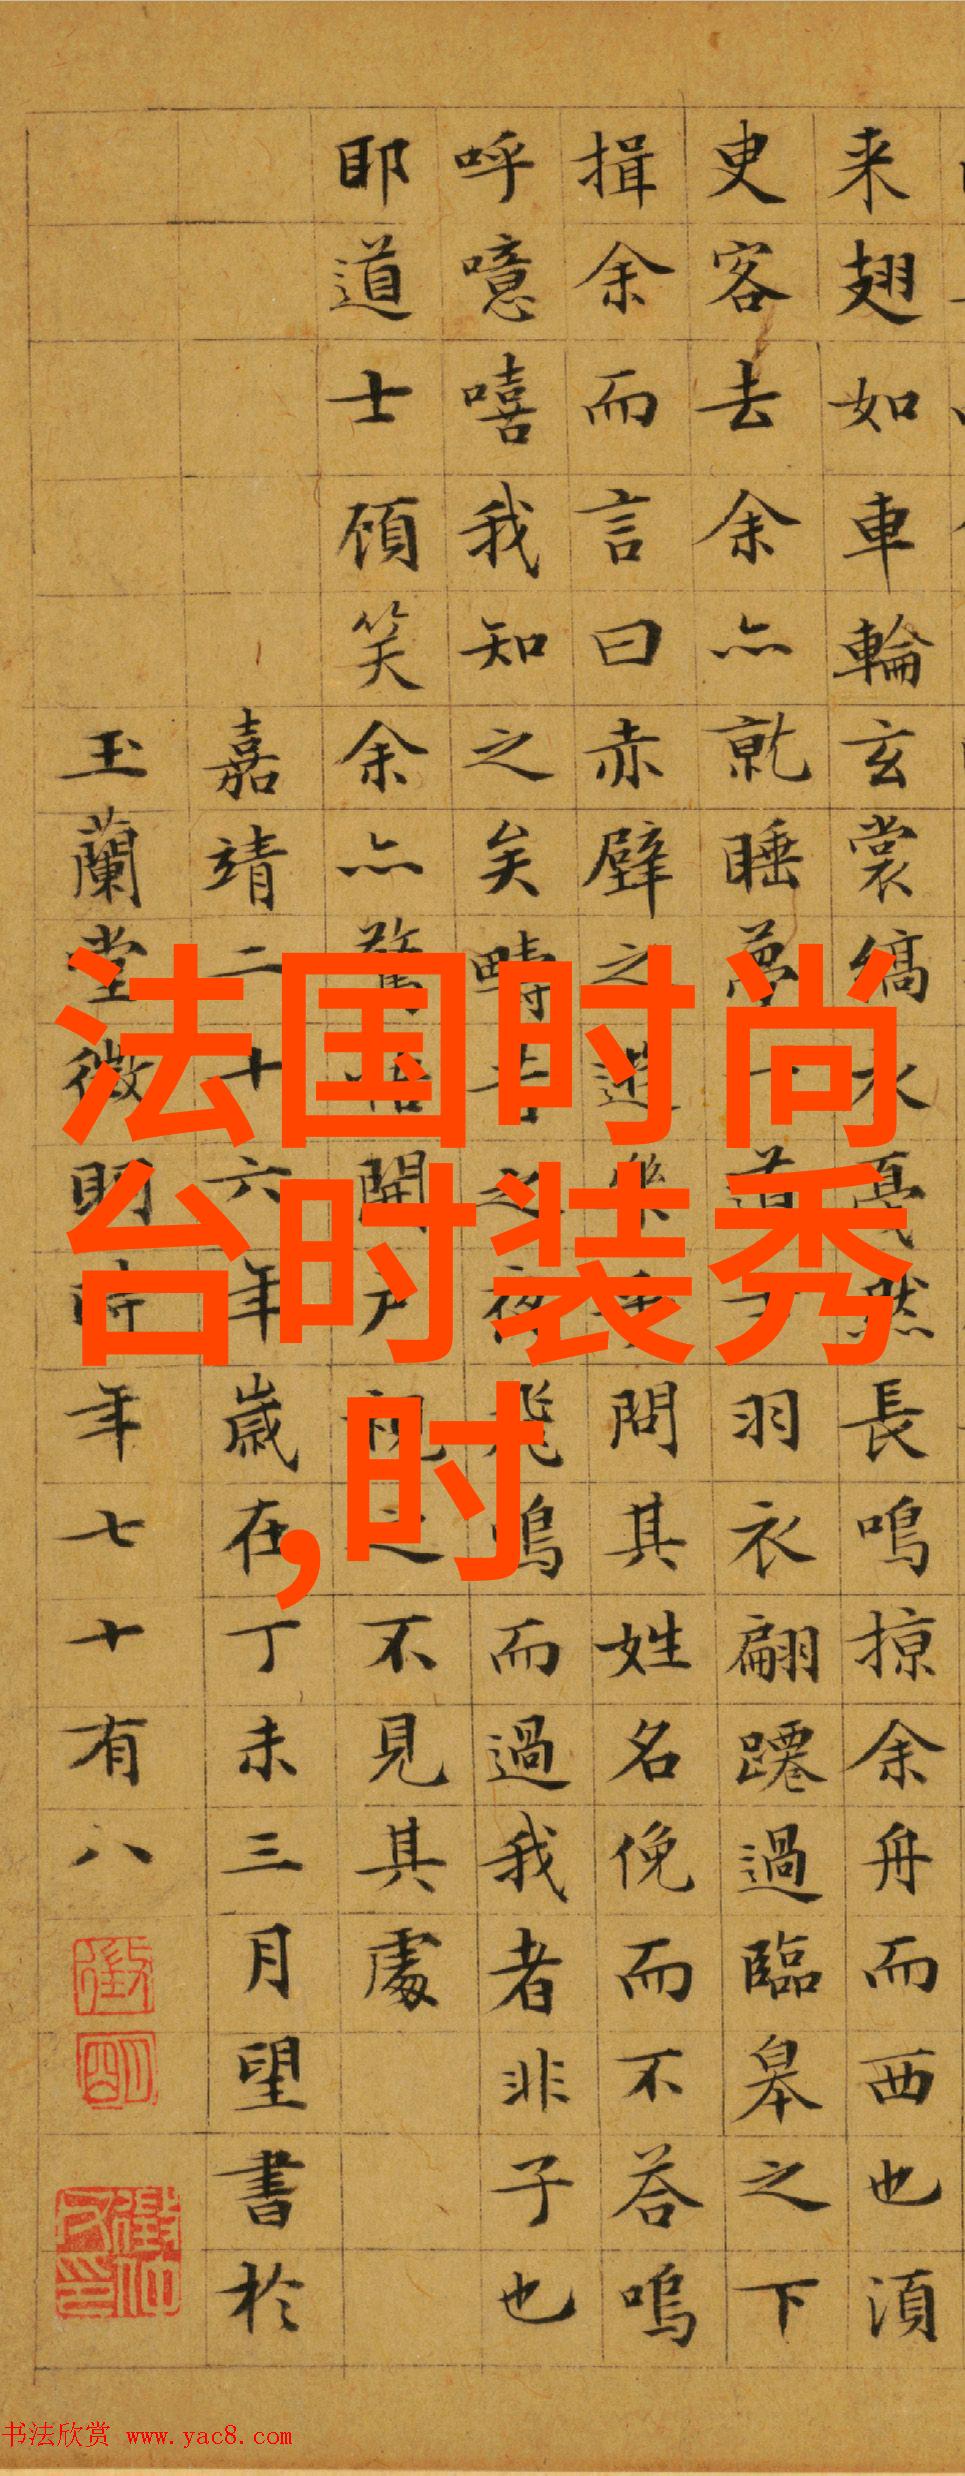 来翅如車輪玄裳縞衣戛然長鳴掠余舟而西也須
臾客去余亦就睡夢一道士羽衣翩躚過臨皋之下
揖余而言曰赤壁之遊樂乎問其姓名俛而不荅嗚
呼噫嘻我知之矣疇昔之夜飛鳴而過我者非子也
耶道士頋笑余亦驚悟開戶視之不見其處
嘉靖二十六年歲在丁未三月望書於
玉蘭堂徵明時年七十有八
徵
明
法国时尚
台时装秀
,时
书法欣赏 www.yac8.com